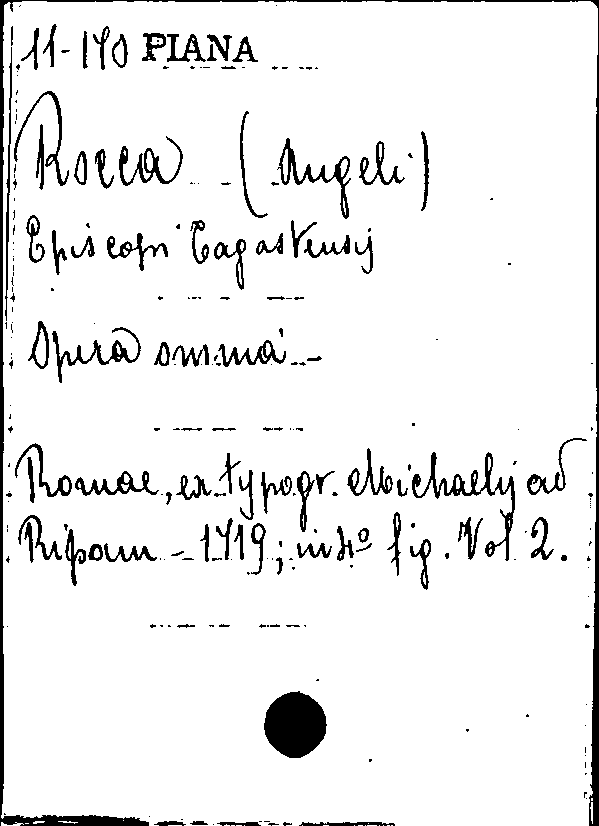 11-170 PIANA
Rocca (Angeli)
Episcopi Tagastensij
Opera omnia -
Romae, ex typogr. Michaelij ad
Ripam - 1719; in 4º fig. Vol 2.